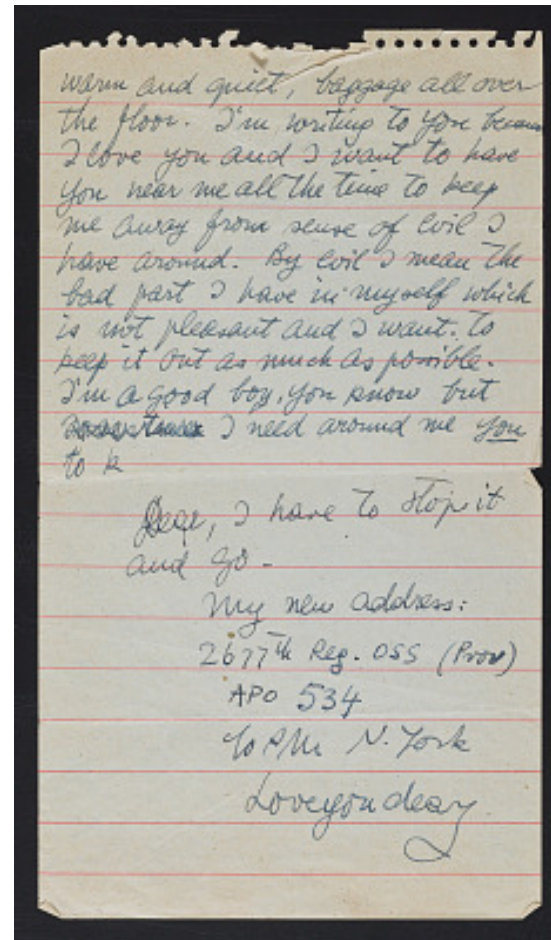 warm and quiet, baggage all over
the floor. I'm writing to you because
I love you and I want to have
you near me all the time to keep
me away from sense of evil I
have around. By evil I mean the
bad part I have in myself which
is not pleasant and I want. to
keep it out as much as possible.
I'm a good boy, you know but
sometimes I need around me you
to k
Dear, I have to stop it
and go -
My new address:
2677th Reg. OSS (Prov)
APO 534
c/o P.M. N. York
Love you dear